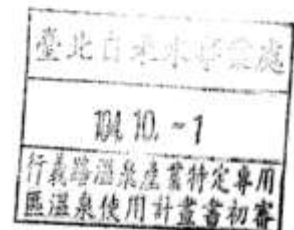 臺北自來水事業處
104. 10. -1
行義路溫泉產業特定專用
區溫泉使用計畫書初審